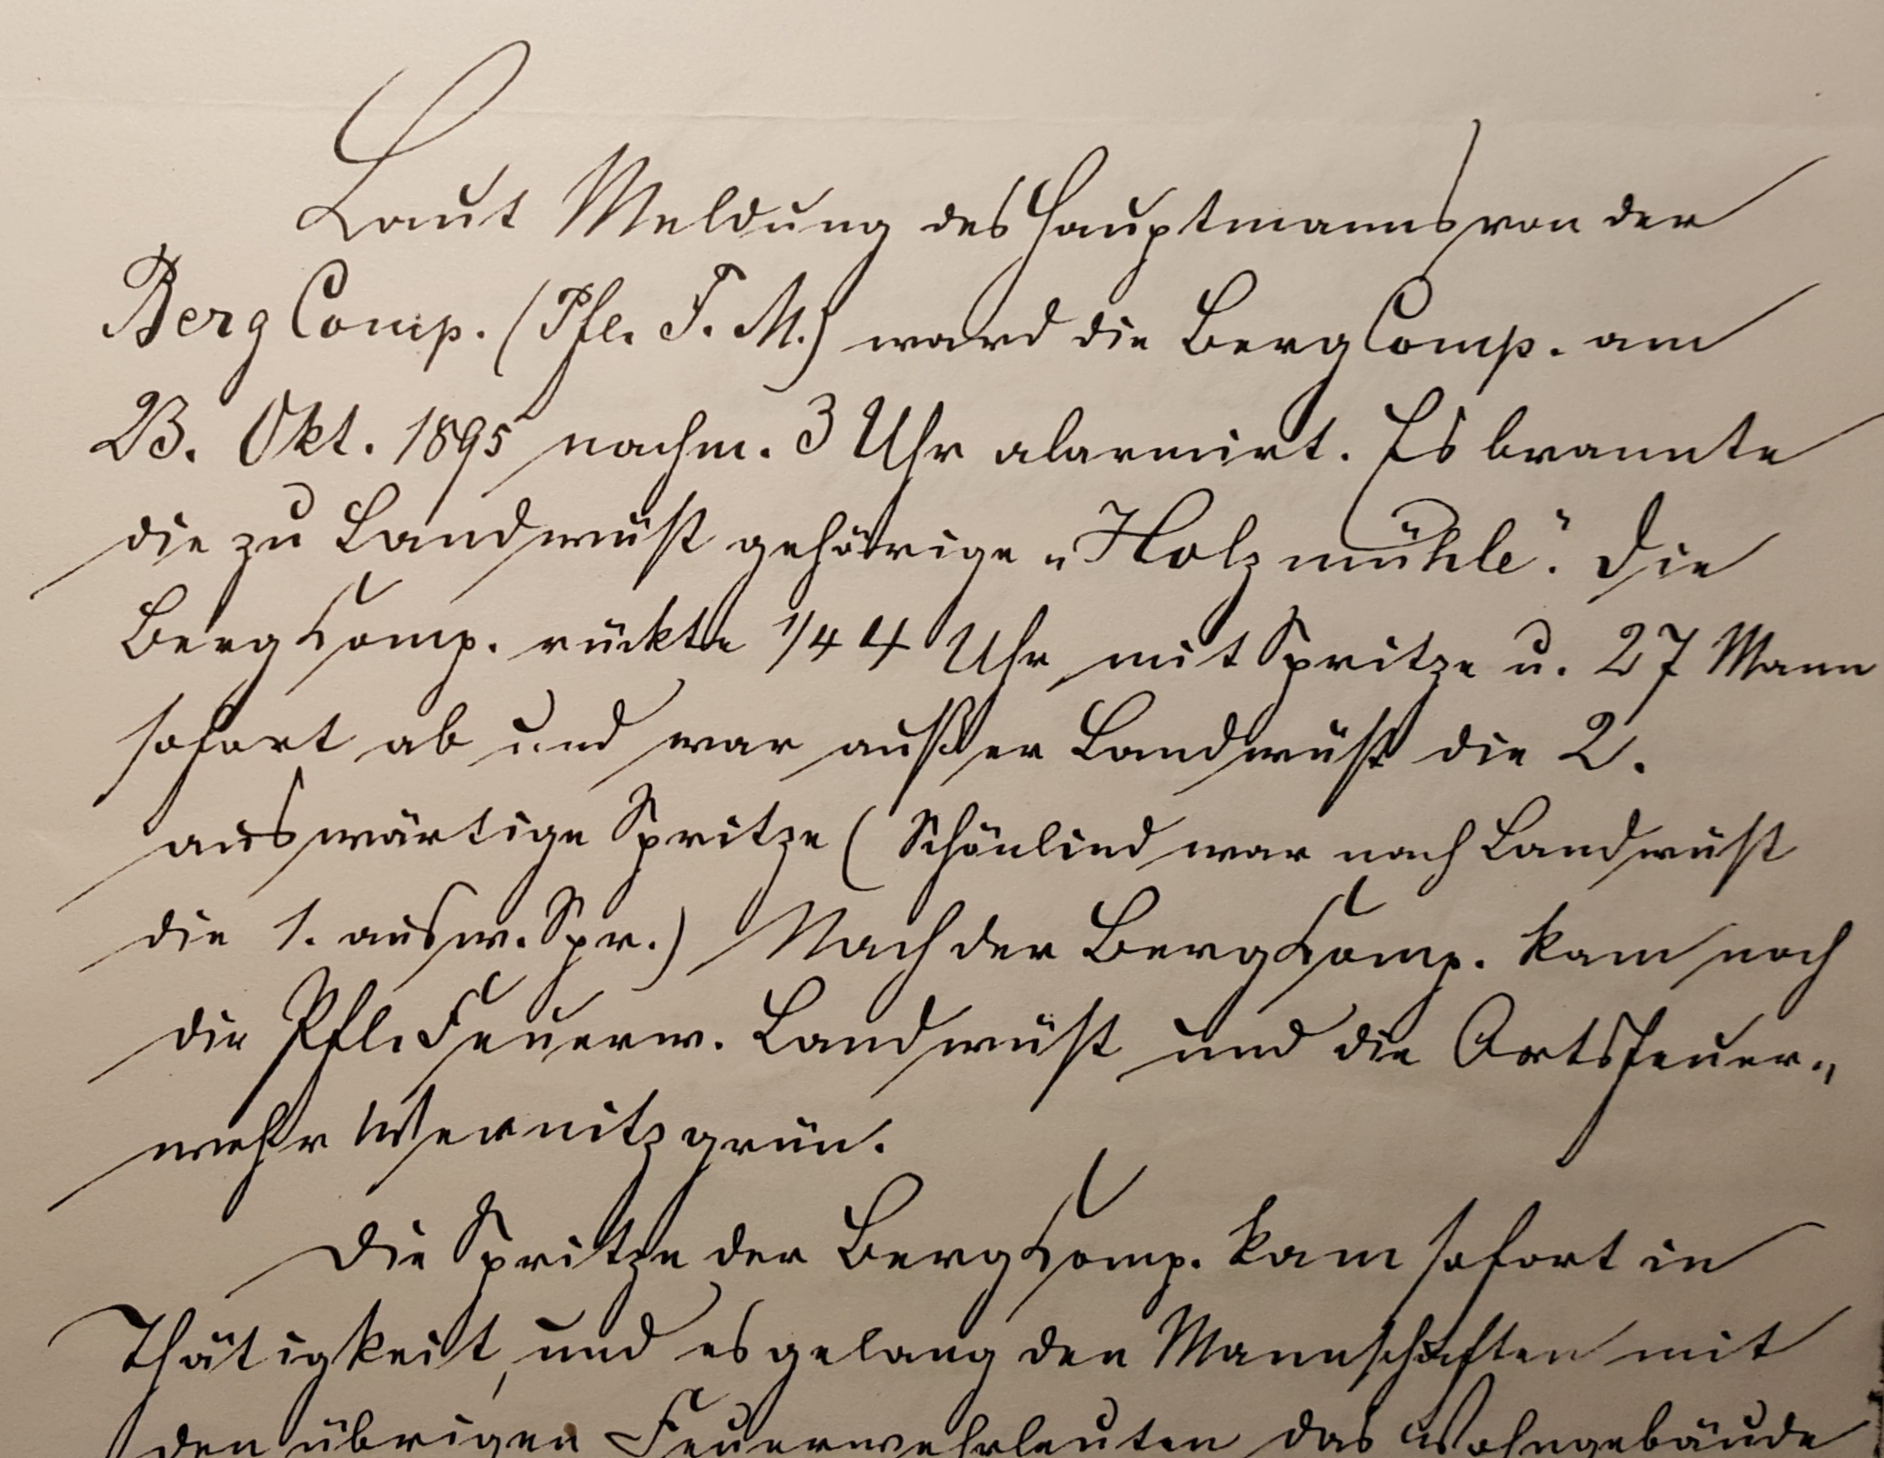 Laut Meldung des Hauptmanns von der
Berg Comp. (Pfl. F. M.) ward die Berg Comp. am
23. Okt. 1895 nachm. 3 Uhr alarmirt. Es brannte
die zu Landwüst gehörige „Holzmühle". Die
Berg Comp. rückte 1/4 4 Uhr mit Spritze u. 27 Mann
sofort ab und war außer Landwüst die 2.
auswärtige Spritze (Schönlind war nach Landwüst
die 1. ausw. Spr.) Nach der Berg Comp. kam noch
die Pfl. Feuerw. Landwüst und die Ortsfeuer-
wehr Wernitzgrün.
Die Spritze der Berg Comp. kam sofort in
Thätigkeit, und es gelang den Mannschaften mit
den übrigen Feuerwehrleuten das Wohngebäude